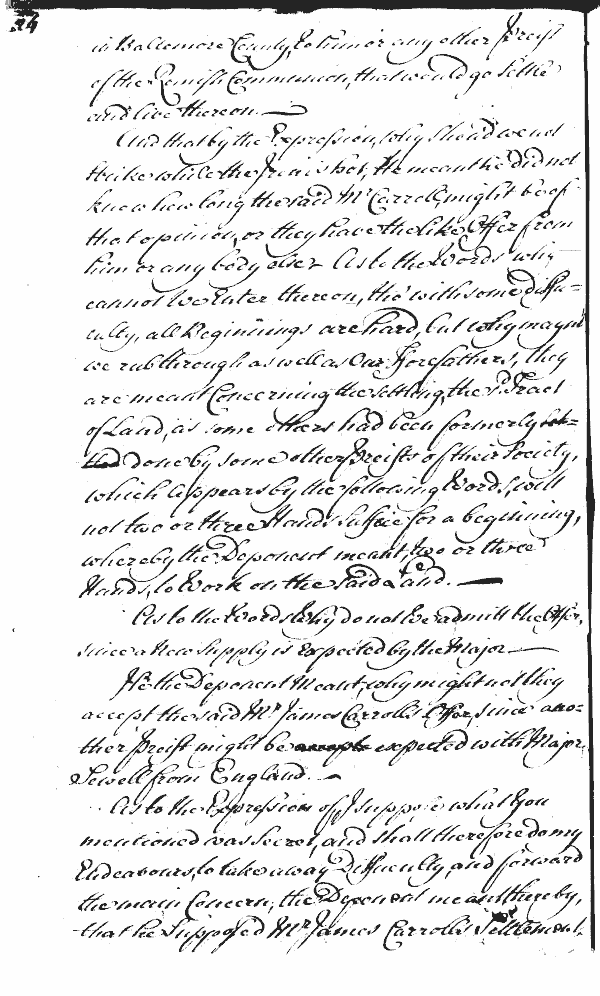 24
in Baltemore County, to him or any other Preist
of the Romish Communion, that would go settle
and live thereon.
And that by the Expression, why should we not
strike while the Iron is hot, He meant he did not
know how long the said Mr Carroll, might be of
that opinion, or they have the like Offer from
him or any body else. As to the Words why
cannot We Enter thereon, tho' with some diffi=
culty, all Beginnings are hard, but why mayn't
we rub through as well as Our Forefathers, they
are meant Concerning the settling the sd. Tract
of Land, as some others had been formerly
done by some other Preists of their Society,
which Appears by the following Words, will
not two or three Hands suffice for a beginning,
whereby the Deponent meant, two or three
Hands, to Work on the said Land.
As to the Words Why do not We admitt the Offer,
since a New Supply is Expected by the Major
He the Deponent Meant, why might not they
accept the said Mr James Carroll's Offer, since ano=
ther Preist might be accepte expected with Major
Sewell from England.
As to the Expression of, I suppose what You
mentioned was secret, and shall therefore do my
Endeavours, to take away Difficulty, and forward
the main Concern, the Deponent meant thereby,
that he Supposed Mr James Carroll's Settlement,